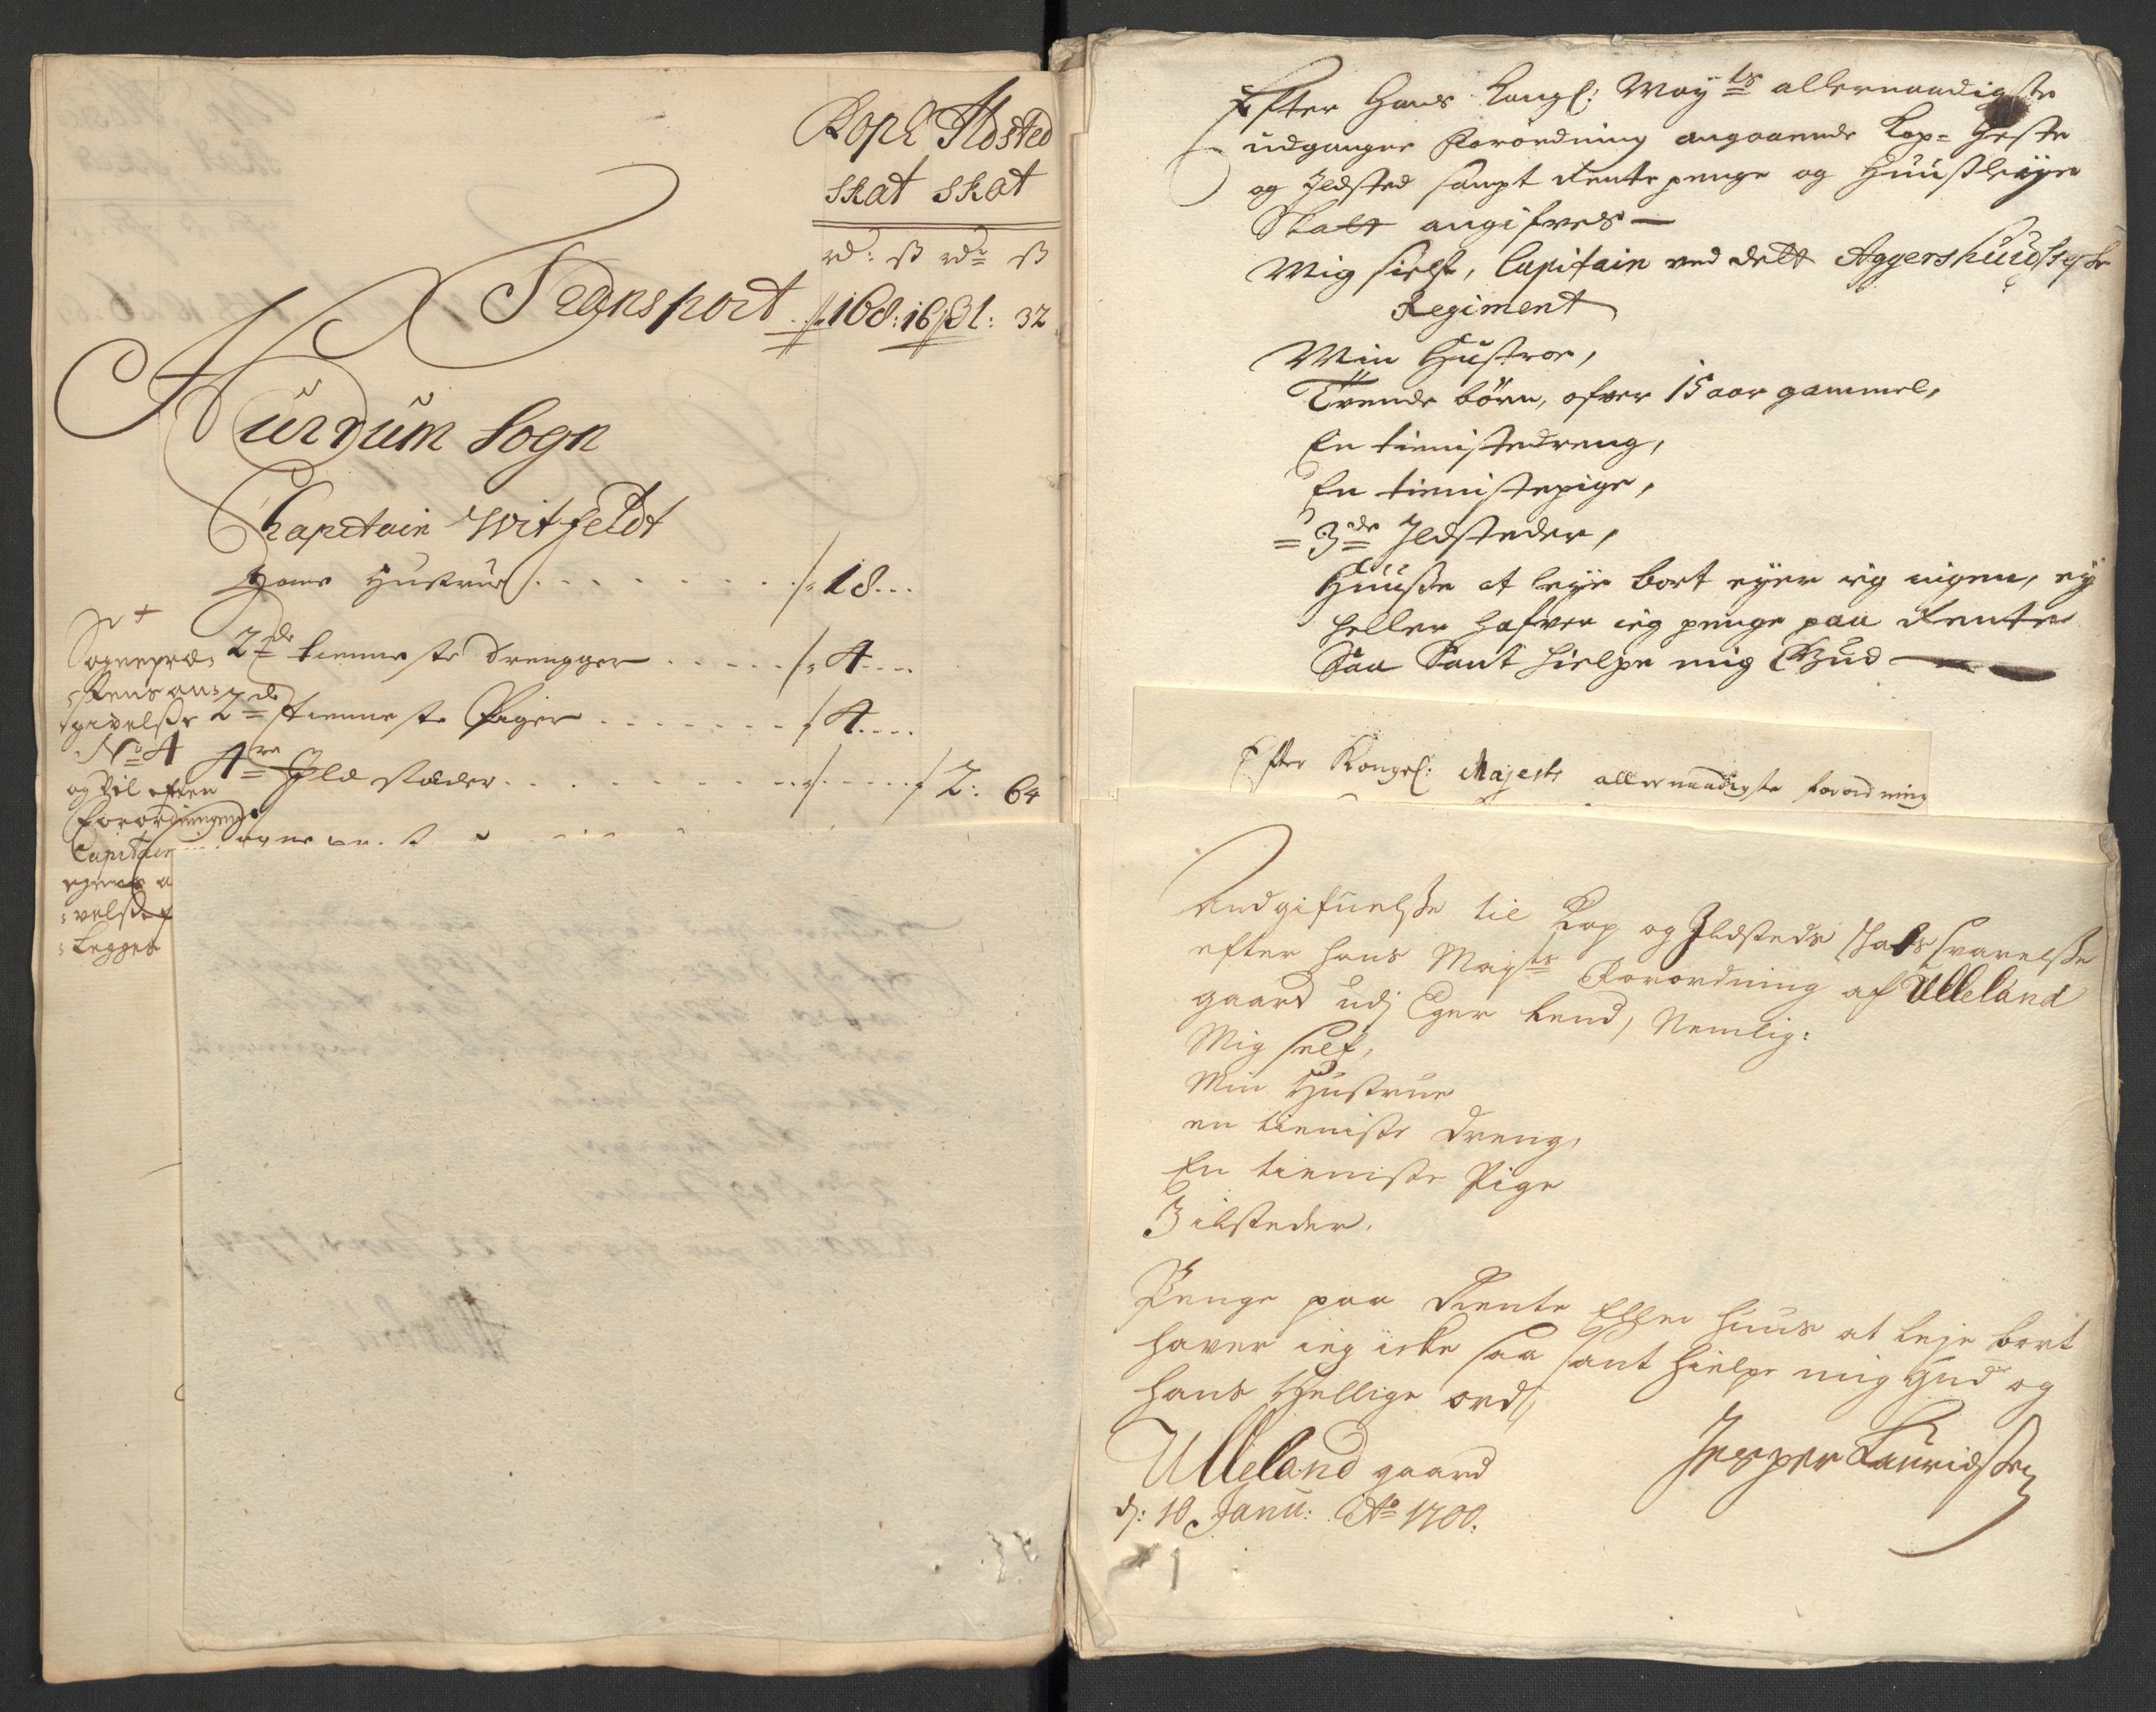 Kop& Ildsted
skat skat
rd: ß rdr ß
Transport 168: 16 / 31: 32
Hurdum Sogn
Chapitain Witfeldt
Hans Hustrue 18
2de tienneste drengger 4
2de tienneste Piger 4
4re Ild stæder 2: 64
Sognepræ-
stens an-
givelsse
No 4
og vil efter
Forordningen
Capitain
egen a
velse
Legges
Efter Hans Kongl: Mayts allernaadigste
udgangne Forordning angaaende Kop- Heste
og Ildsted sampt Rente penge og Huusleyes
Skatt angifves
Mig sielf, Capitain ved dett Aggershuusiske
Regiment
Min Hustroe,
Tvende börn, ofver 15 aar gammel,
En tienistedreng,
En tienistepige,
3de Ildsteder,
Huusse at leye bort eyer ieg ingen, ey
heller hafver ieg penge paa Rente
Saa Sant hielpe mig Gud
Efter Kongel: Majests allernaadigste forordning
Andgifuelsse til Kop og Ildsteds skats svarelsse
efter hans Mayts Forordning af Ulleland
gaard udj Eger Lend, Nemlig:
Mig self,
Min Hustrue
en tieniste Dreng,
En tieniste Pige
3 ilsteder.
Penge paa Rente Eller huus at leje bort
haver ieg icke saa sant hielpe mig Gud og
hans Hellige ord,
Ulleland gaard
d: 10 Janu: Ao 1700.
Jesper Lauridssen